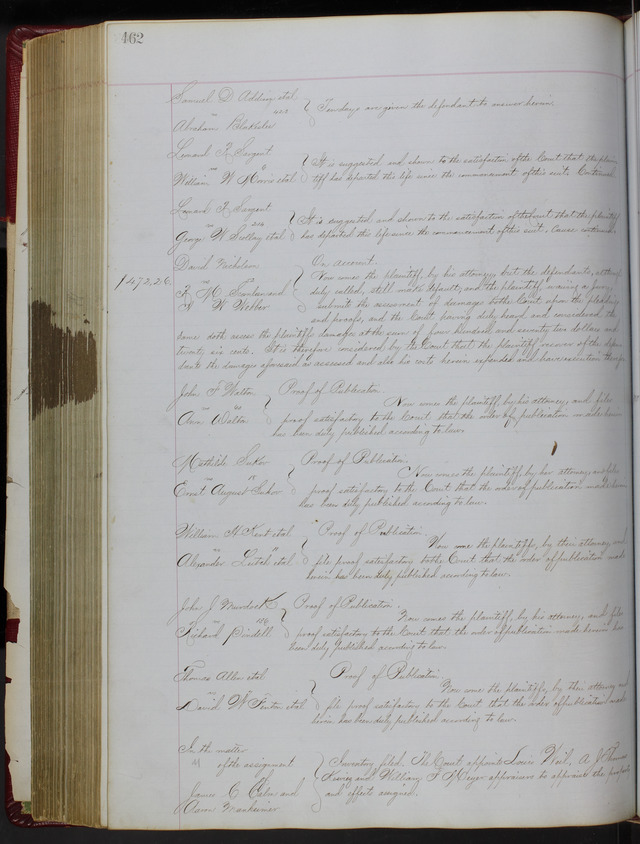 462
Samuel D Adding etal
vs
Abraham Blakeslee
Ten days are given the defendant to answer herein.
Leonard F Sargent
vs
William W Morris etal
It is suggested and shown to the satisfaction of the Court that the plain
tiff has departed this life since the commencement of this suit. Continued
Leonard F Sargent
vs
George W etal
It is suggested and shown to the satisfaction of the Court that the plaintiff
has departed this life since the commencement of this suit. Cause continued
David Nicholson
vs
F M and
W Webber
On account
$472,26
Now comes the plaintiff, by his attorney, but the defendants, altho
duly called, still make default, and the plaintiff waiving a jury,
submits the assessment of damages to the Court upon the pleadings
and proofs, and the Court having duly heard and considered the
same doth assess the plaintiffs damages at the sum of four hundred and seventy two dollars and
twenty six cents. It is therefore considered by the Court that the plaintiff recover of the defen
dants the damages aforesaid so assessed and also his costs herein expended and have execution therefor
John F Walton
vs
Ann Walton
Proof of Publication
Now comes the plaintiff by his attorney, and files
proof satisfactory to the Court that the order of publication made herein
has been duly published according to law.
Mathilde Suhor
vs
Ernst August Suhor
Proof of Publication
Now comes the plaintiff, by her attorney and files
proof satisfactory to the Court that the order of publication made herein
has been duly published according to law.
William H Kent etal
vs
Alexander etal
Proof of Publication
Now come the plaintiffs, by their attorney and
file proof satisfactory to the Court that the order of publication made
herein has been duly published according to law.
John J Murdock
vs
Richard Pindell
Proof of Publication.
Now comes the plaintiff, by his attorney, and files
proof satisfactory to the Court that the order of publication made herein has
been duly published according to law.
Thomas Allen etal
vs
David W Fenton etal
Proof of Publication
Now come the plaintiffs, by their attorney and
file proof satisfactory to the Court that the order of publication made
herein has been duly published according to law.
In the matter
of the assignment
of
James C Cahn and
Aaron Manheimer
Inventory filed. The Court appoints Louis Weil, A J Thomas
and William F Meyer appraisers to appraise the property
and effects assigned.